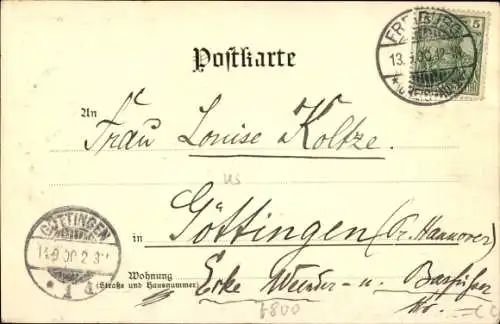 FREIBURG
13. 9. 00. 12-
* (BREISGAU) *
5
Postkarte
An
Frau Louise Koltze.
us
in Göttingen (Pr. Hannover)
GÖTTINGEN
14.9.00.2-3
* 1 d
Wohnung
(Straße und Hausnummer)
Ecke Weender- u. Barfüßer